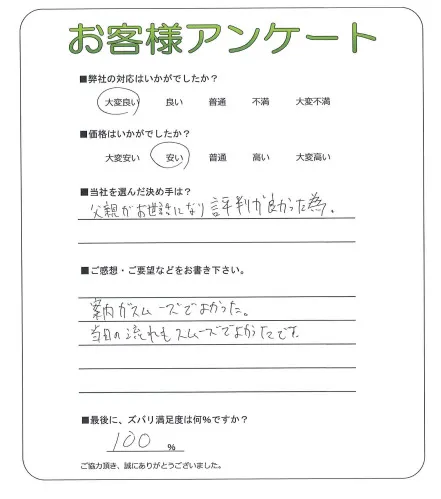 お客様アンケート
■弊社の対応はいかがでしたか？
大変良い 良い 普通 不満 大変不満
■価格はいかがでしたか？
大変安い 安い 普通 高い 大変高い
■当社を選んだ決め手は？
父親がお世話になり評判が良かった為。
■ご感想・ご要望などをお書き下さい。
案内がスムーズでよかった。
当日の流れもスムーズでよかったです。
■最後に、ズバリ満足度は何%ですか？
100 %
ご協力頂き、誠にありがとうございました。